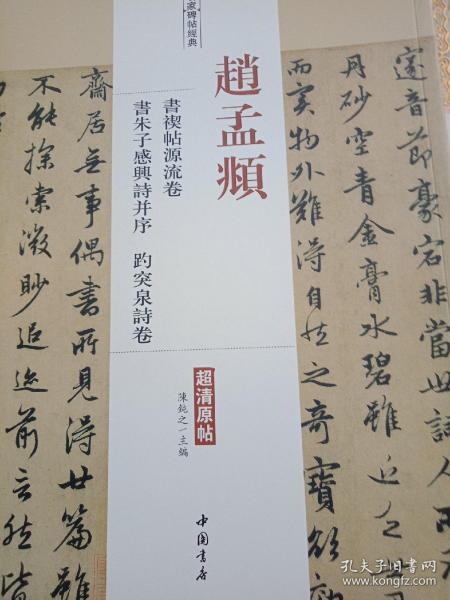 邃音節豪宕非當世詞人
丹砂空青金膏水碧雖近乏世
而實物外難得自然之奇寶欲
家碑帖經典
趙孟頫
書禊帖源流卷
書朱子感興詩并序 趵突泉詩卷
超清原帖
陳鈍之一主編
中国書店
齋居無事偶書所見得廿篇雖
不能探索微眇追迹前言然皆
孔夫子旧书网
www.kongfz.com